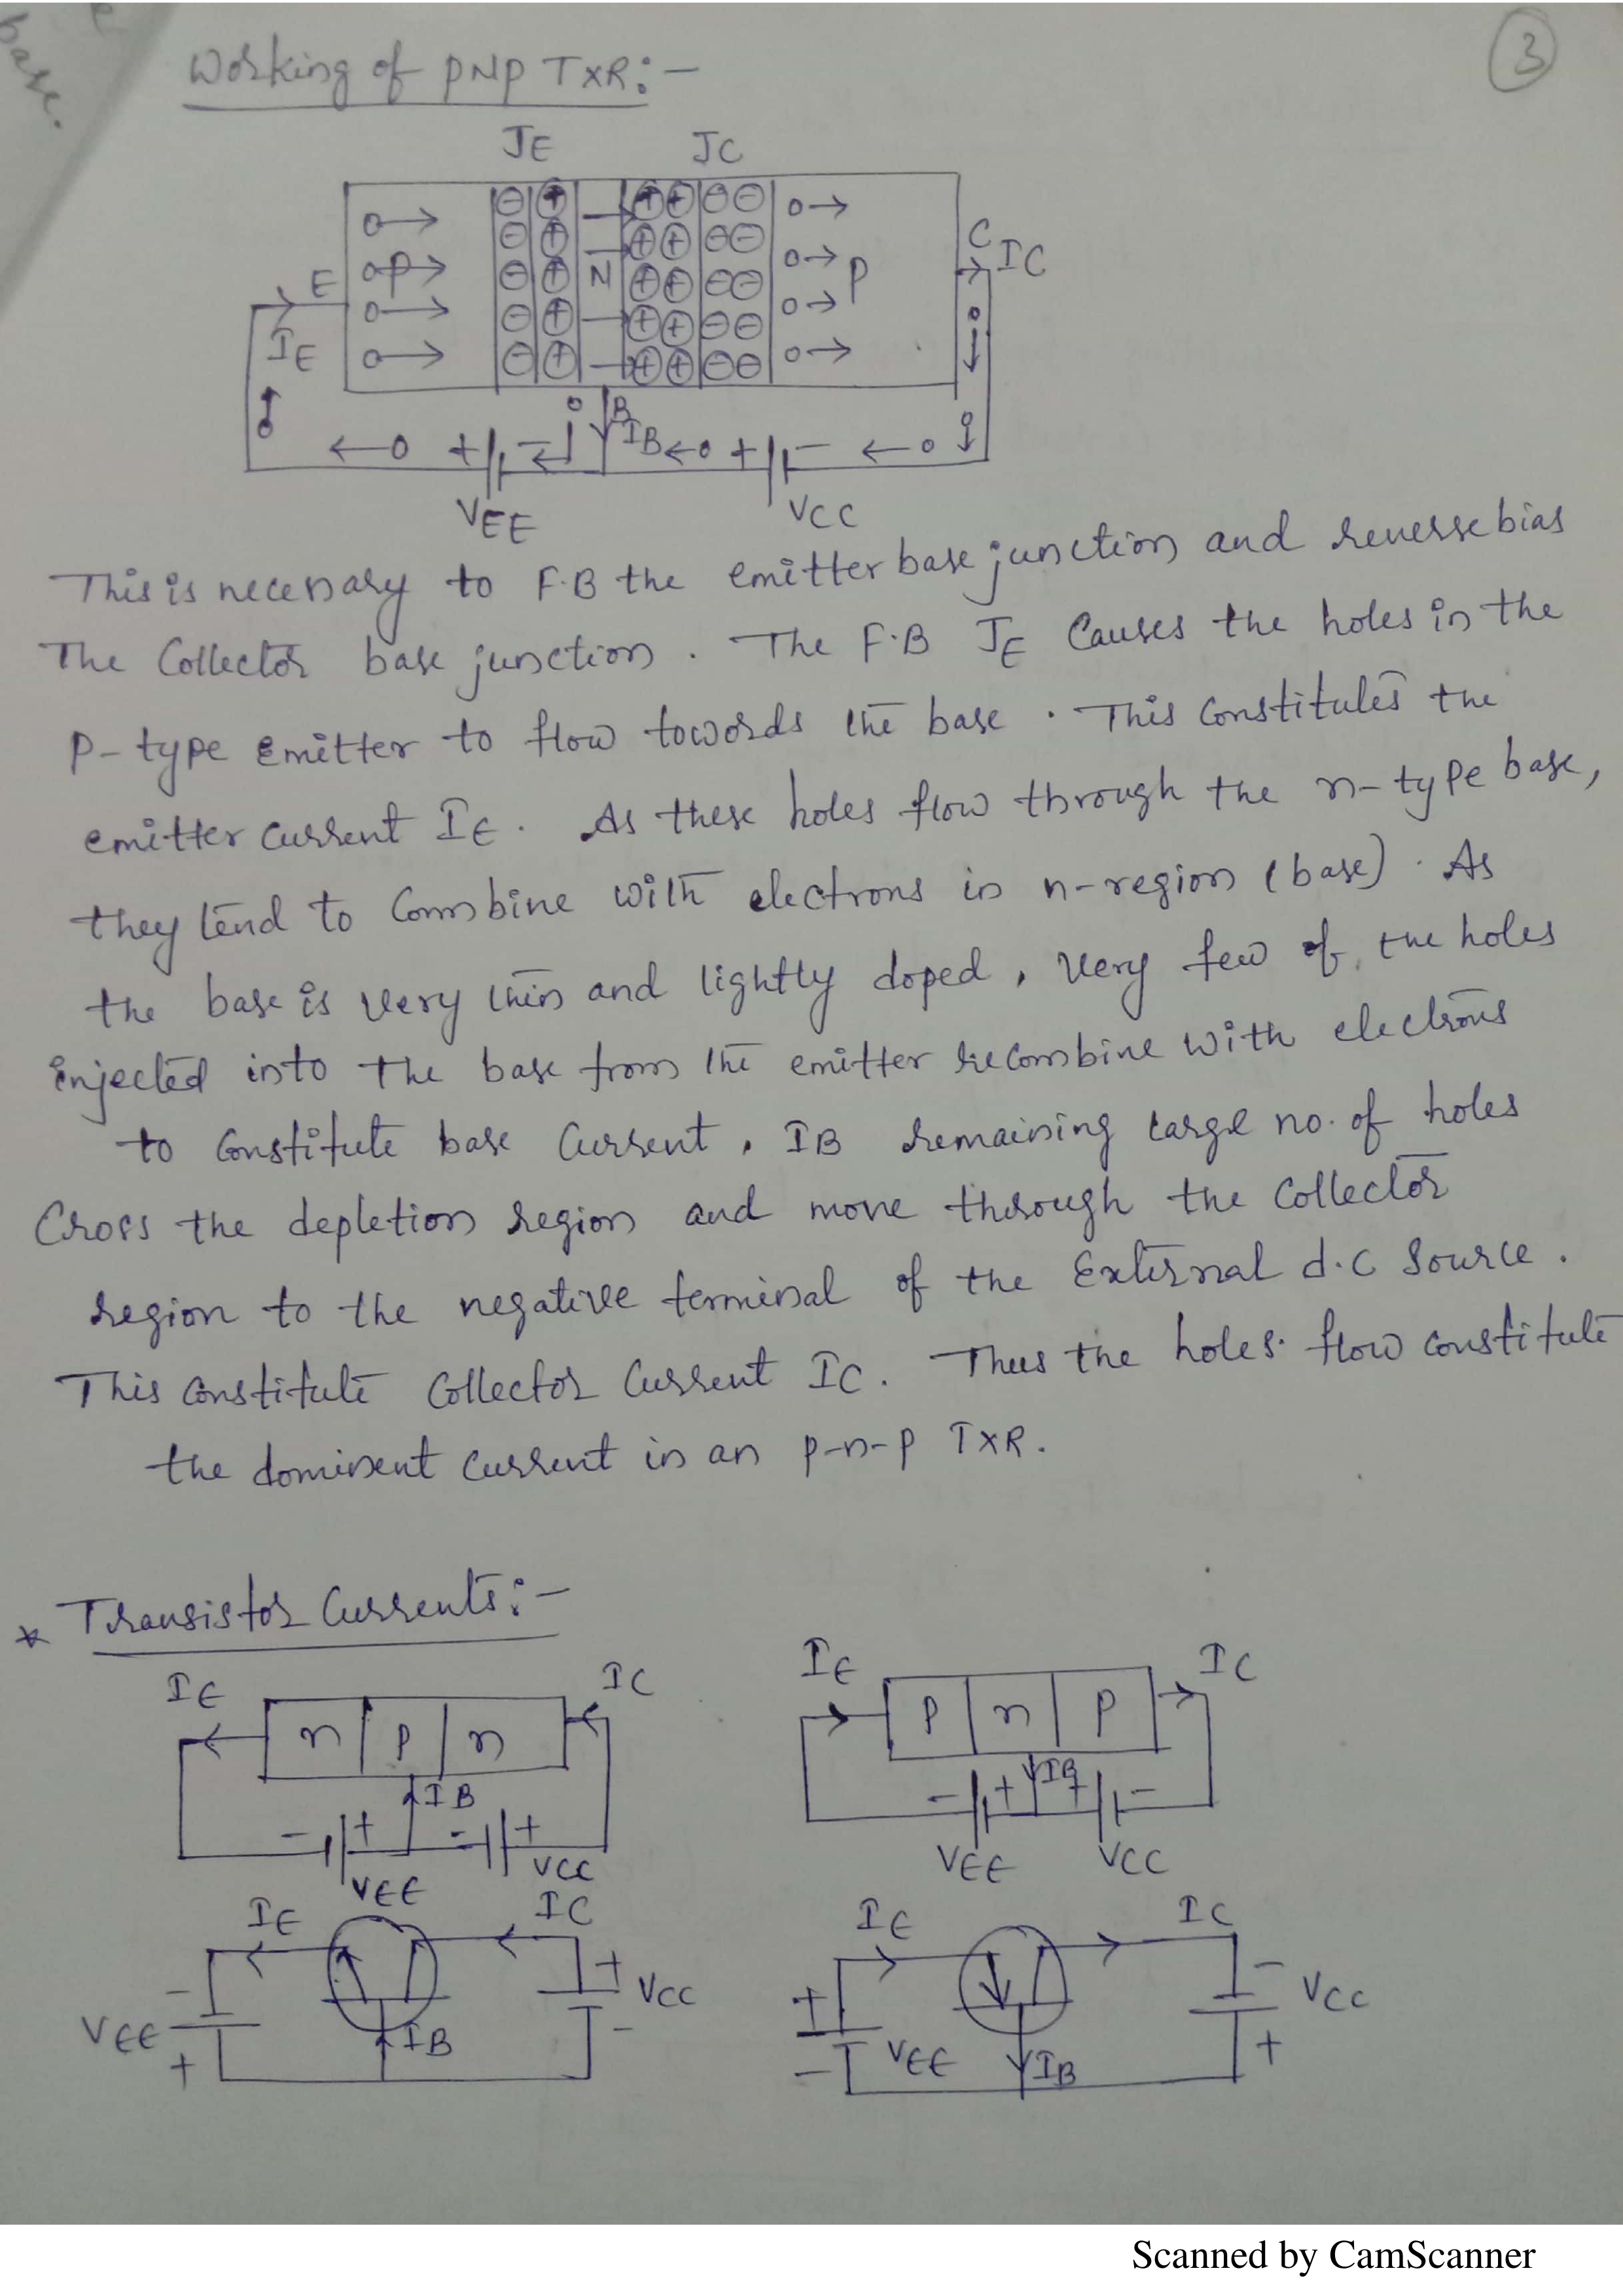 base.
3
Working of PNP TXR:-
JE JC
E P N P C IC
IE
B
IB
+ - + -
VEE VCC
This is necessary to F.B the emitter base junction and reverse bias
The Collector base junction. The F.B JE Causes the holes in the
P-type Emitter to flow towords the base. This Constitutes the
emitter Current IE. As these holes flow through the n-type base,
they tend to Combine with electrons in n-region (base). As
the base is very thin and lightly doped, very few of the holes
injected into the base from the emitter recombine with electrons
to Constitute base Current, IB remaining large no. of holes
Cross the depletion region and move through the Collector
region to the negative terminal of the External d.c Source.
This Constitute Collector Current IC. Thus the holes flow constitute
the dominent Current in an p-n-p TXR.
* Transistor Currents:-
IE IC IE IC
n p n P n P
IB IB
- + - + - + + -
VEE VCC VEE VCC
IE IC IE IC
- + VCC + - VCC
VEE IB - VEE IB +
+ -
Scanned by CamScanner